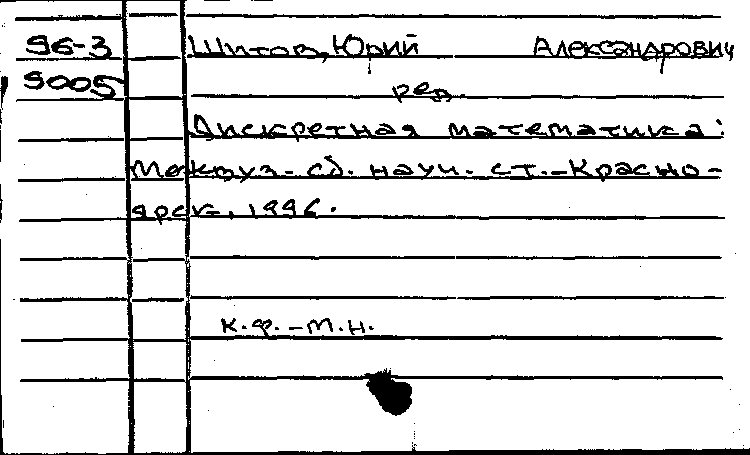 96-3 Шитов, Юрий Александрович
9005 ред.
Дискретная математика:
Межвуз. сб. науч. ст.-Красно-
ярск, 1996.
к.ф.-м.н.